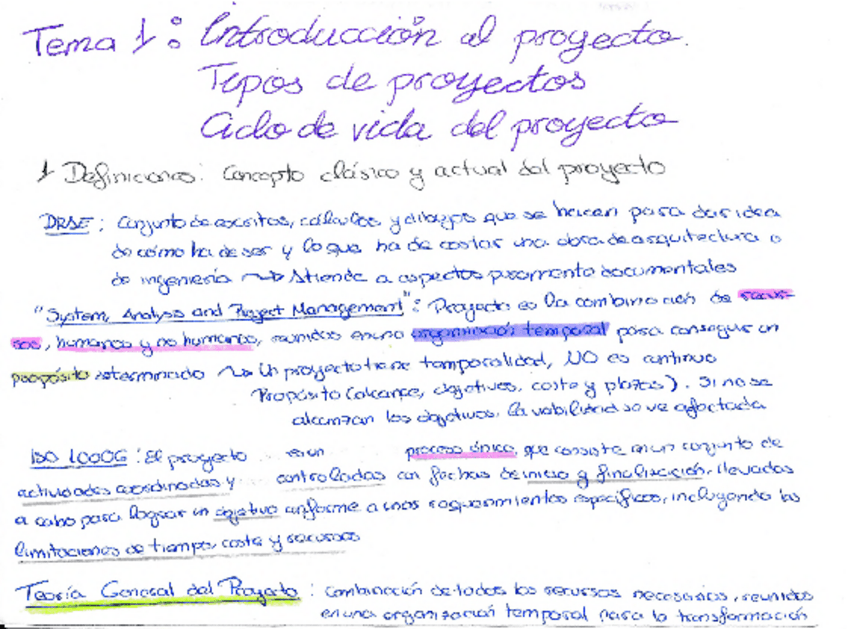 Tema 1: Introducción al proyecto.
Tipos de proyectos
Ciclo de vida del proyecto
1 Definiciones: Concepto clásico y actual del proyecto
DRAE: Conjunto de escritos, cálculos y dibujos que se hacen para dar idea
de cómo ha de ser y lo que ha de costar una obra de arquitectura o
de ingeniería → Atiende a aspectos puramente documentales
"System, Analysis and Project Management": Proyecto es la combinación de recur-
sos, humanos y no humanos, reunidos en una organización temporal para conseguir un
propósito determinado → Un proyecto tiene temporalidad, NO es continuo
Propósito (alcance, objetivos, coste y plazos). Si no se
alcanzan los objetivos, la viabilidad se ve afectada
ISO 10006: El proyecto es un proceso único, que consiste en un conjunto de
actividades coordinadas y controladas con fechas de inicio y finalización, llevadas
a cabo para lograr un objetivo conforme a unos requerimientos específicos, incluyendo las
limitaciones de tiempo, coste y recursos
Teoría General del Proyecto: Combinación de todos los recursos necesarios, reunidos
en una organización temporal para la transformación